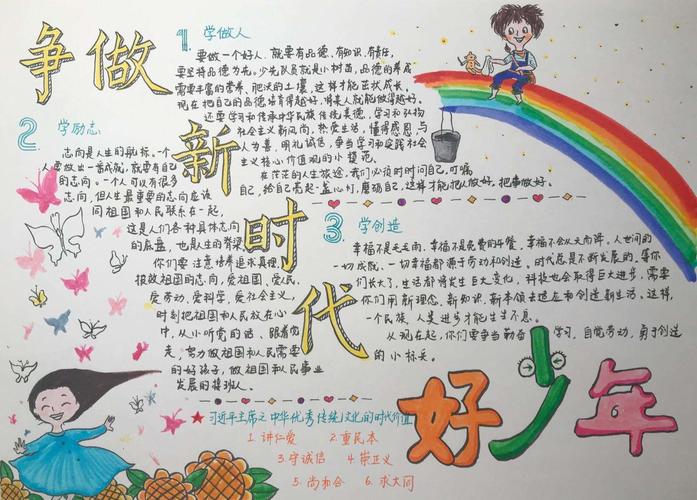 争做
新时代
好少年
1. 学做人
要做一个好人,就要有品德、有知识、有责任,
要坚持品德为先。少先队员就是小树苗,品德的养成
需要丰富的营养、肥沃的土壤,这样才能茁状成长。
现在把自己的品德培育得越好,将来人就能做得越好。
还要学习和传承中华民族传统美德,学习和弘扬
社会主义新风尚,热爱生活,懂得感恩,与
人为善,明礼诚信,争当学习和实践社会
主义核心价值观的小模范。
在茫茫的人生旅途,我们必须时时问自己,叮嘱
自己,给自己亮起一盏心灯,磨砺自己,这样才能把人做好,把事做好。
2 学励志
志向是人生的航标。一个
人要做出一番成就,就要有自己
的志向。一个人可以有很多
志向,但人生最重要的志向应该
同祖国和人民联系在一起,
这是人们各种具体志向
的底盘,也是人生的脊梁。
你们要注意培养追求真理、
报效祖国的志向,爱祖国、爱人民、
爱劳动、爱科学、爱社会主义,
时刻把祖国和人民放在心
中,从小听党的话、跟着党
走,努力做祖国和人民需要
的好孩子,做祖国和人民事业
发展的接班人。
3. 学创造
幸福不是毛毛雨,幸福不是免费的午餐,幸福不会从天而降。人世间的
一切成就、一切幸福都源于劳动和创造。时代总是不断发展的,等你
们长大了,生活都将发生巨大变化,科技也会取得巨大进步,需要
你们用新理念、新知识、新本领去适应和创造新生活。这样,
一个民族,人类进步才能生生不息。
从现在起,你们要争当勤奋学习、自觉劳动、勇于创造
的小标兵。
★习近平主席之中华优秀传统文化的时代价值
1. 讲仁爱 2. 重民本
3. 守诚信 4. 崇正义
5. 尚和合 6. 求大同